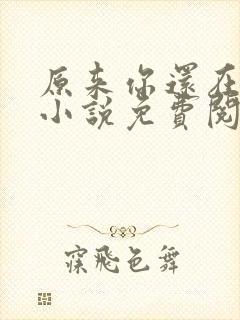 原来你還在
小說免費閱
寐飛色舞